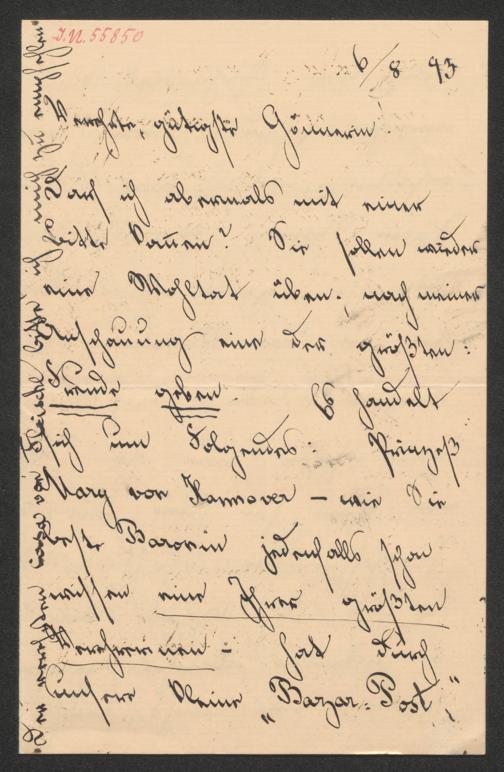 I.N. 55850
6/8 93
Verehrte, gütigste Gönnerin!
Darf ich abermals mit einer
Bitte kommen? Sie sollen wieder
eine Wohltat üben, nach meiner
Anschauung eine der größten:
Freude geben. Es handelt
sich um Folgendes: Prinzeß
Mary von Hannover – wie Sie
beste Baronin jedenfalls schon
wissen eine Ihrer größten
Verehrerinnen – hat durch
unsere kleine „Bazar-Post",
bitte ich mich zu empfehlen